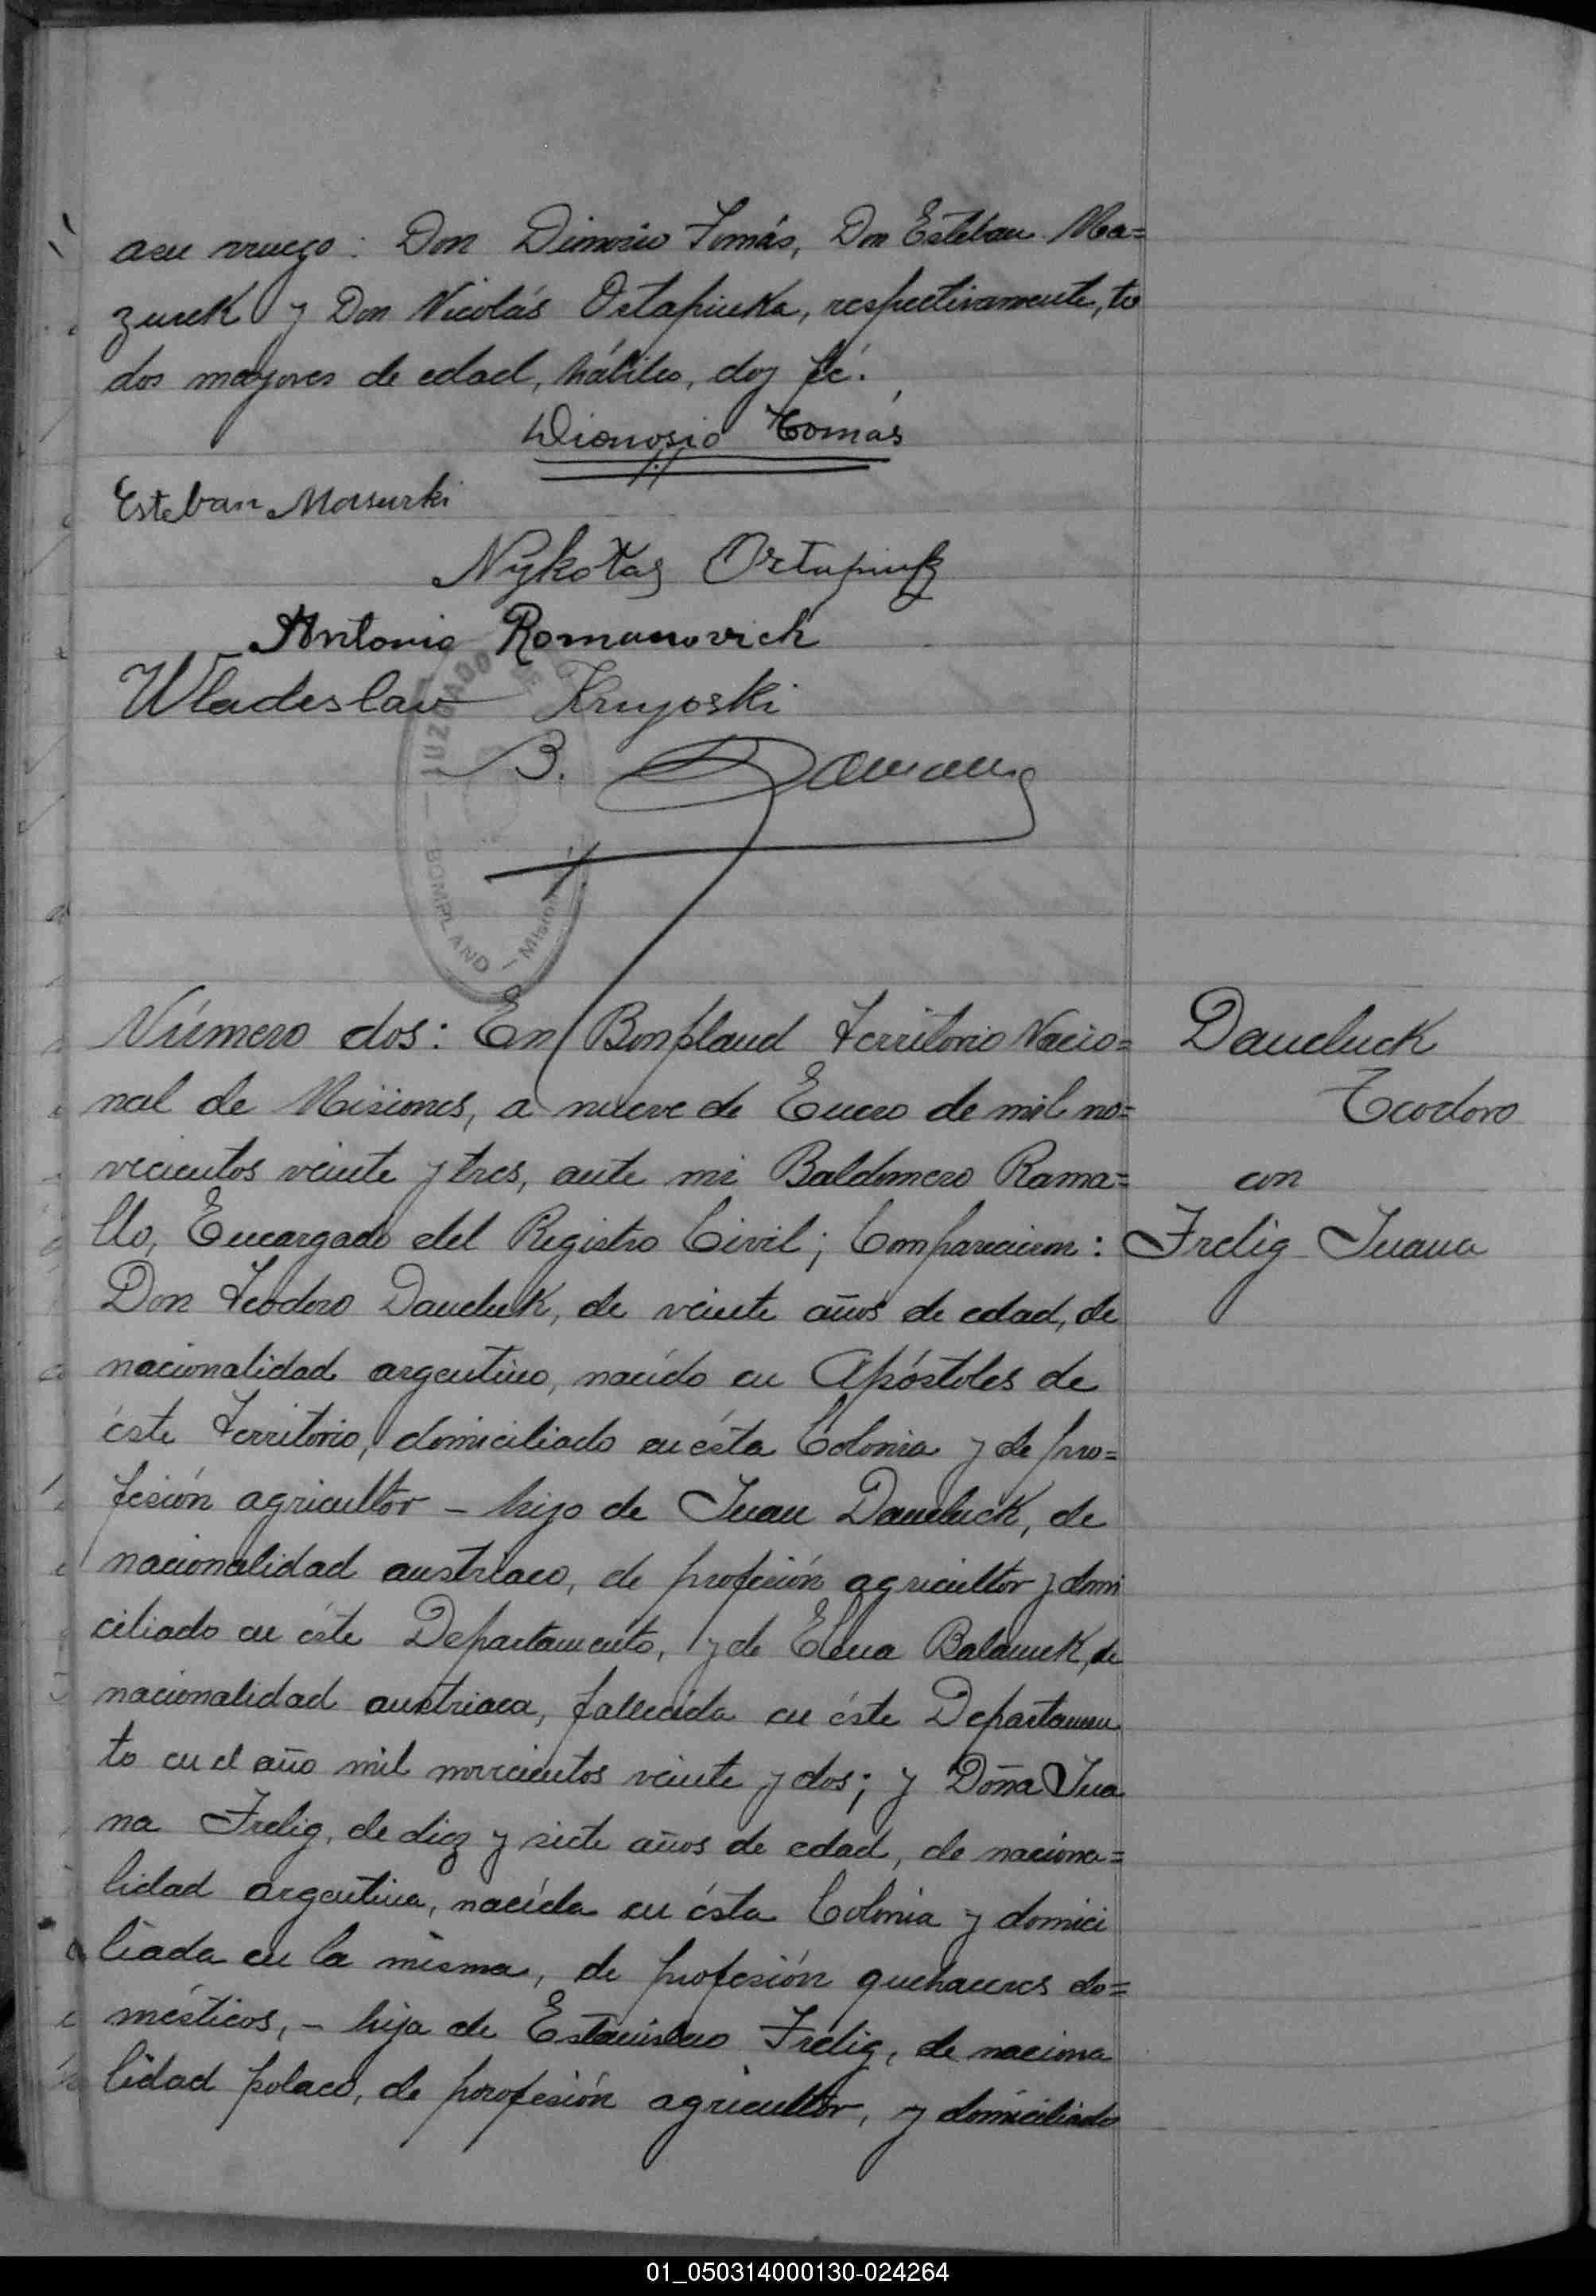 asu rruego: Don Dionosio Tomás, Don Esteban Ma=
zurek y Don Nicolás Ostapiuka, respectivamente, to
dos mayores de edad, hábiles, doy fé.
Dionosio Tomás
Esteban Masurki
Nykotas Ostapiuk
Antonio Romanovich
JUZGADO DE
Wladeslav
B.
BOMPLAND — Misiones
Número dos: En Bonpland Territorio Nacio= Daneluck
nal de Misiones, a nueve de Enero de mil no= Teodoro
vecientos veinte y tres, ante mi Baldomero Rama= con
llo, Encargado del Registro Civil; Comparecieron: Frelig Juana
Don Teodoro Daneluk, de veinte años de edad, de
nacionalidad argentino, nacido en Apóstoles de
éste Territorio, domiciliado en ésta Colonia y de pro=
fesión agricultor – hijo de Juan Daneluck, de
nacionalidad austriaco, de profesión agricultor y domi
ciliado en éste Departamento, y de Elena Balauek, de
nacionalidad austriaca, fallecida en éste Departamen
to en el año mil novecientos veinte y dos; y Doña Jua
na Frelig, de diez y siete años de edad, de naciona=
lidad argentina, nacida en ésta Colonia y domici
liada en la misma, de profesión quehaceres do=
mésticos, – hija de Estanislao Frelig, de naciona
lidad polaco, de profesión agricultor, y domiciliado
01_050314000130-024264